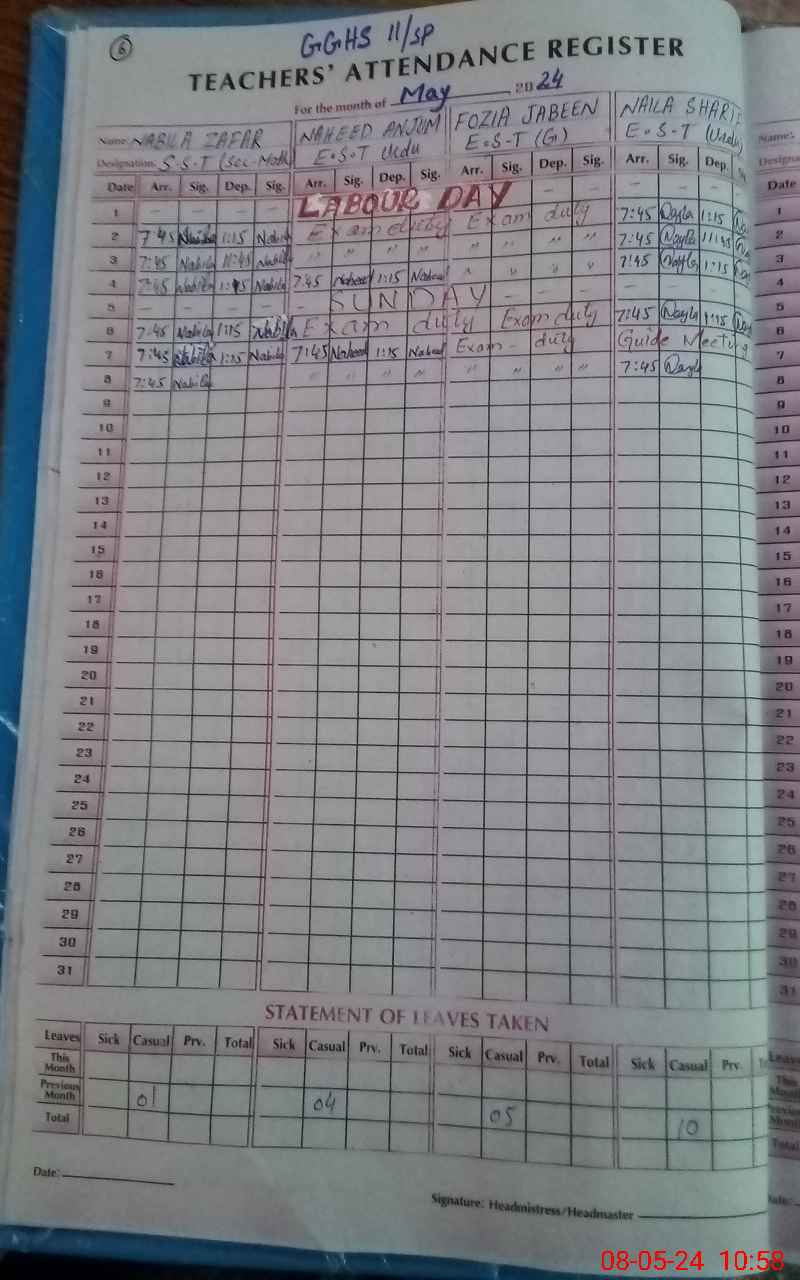 6
GGHS 11/SP
TEACHERS' ATTENDANCE REGISTER
For the month of May 2024
Name: NABILA ZAFAR NAHEED ANJUM FOZIA JABEEN NAILA SHARIF Name:
Designation: S.S.T (Sci-Math) E.S.T Urdu E.S.T (G) E.S.T (Urdu)
Date Arr. Sig. Dep. Sig. Arr. Sig. Dep. Sig. Arr. Sig. Dep. Sig. Arr. Sig. Dep. Date
1 — — — — LABOUR DAY — — — — — 1
2 7:45 Nabila 1:15 Nabila Exam duty Exam duty 7:45 Nayla 1:15 2
3 7:45 Nabila 11:45 Nabila " " " " " " " " 7:45 Nayla 11:45 3
4 7:45 Nabila 1:15 Nabila 7:45 Naheed 1:15 Naheed " " " " 7:45 Nayla 1:15 4
5 — — — — — SUNDAY — — — — — — 5
6 7:45 Nabila 1:15 Nabila Exam duty Exam duty 7:45 Nayla 1:15 6
7 7:45 Nabila 1:15 Nabila 7:45 Naheed 1:15 Naheed Exam - duty Guide Meeting 7
8 7:45 Nabila " " " " " " " " 7:45 Nayla 8
9 9
10 10
11 11
12 12
13 13
14 14
15 15
16 16
17 17
18 18
19 19
20 20
21 21
22 22
23 23
24 24
25 25
26 26
27 27
28 28
29 29
30 30
31 31
STATEMENT OF LEAVES TAKEN
Leaves Sick Casual Prv. Total Sick Casual Prv. Total Sick Casual Prv. Total Sick Casual Prv.
This Month
Previous Month 01 04 05 10
Total Total
Date:
Signature: Headmistress/Headmaster
08-05-24 10:58